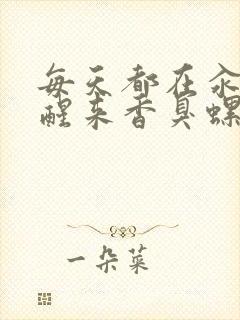 每天都在
醒来香臭螺
一朵菜